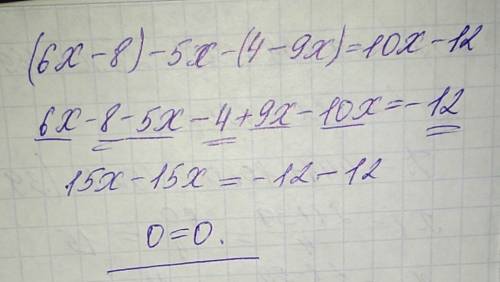 (6x-8)-5x-(4-9x)=10x-12
6x-8-5x-4+9x-10x=-12
15x-15x=-12-12
0=0.